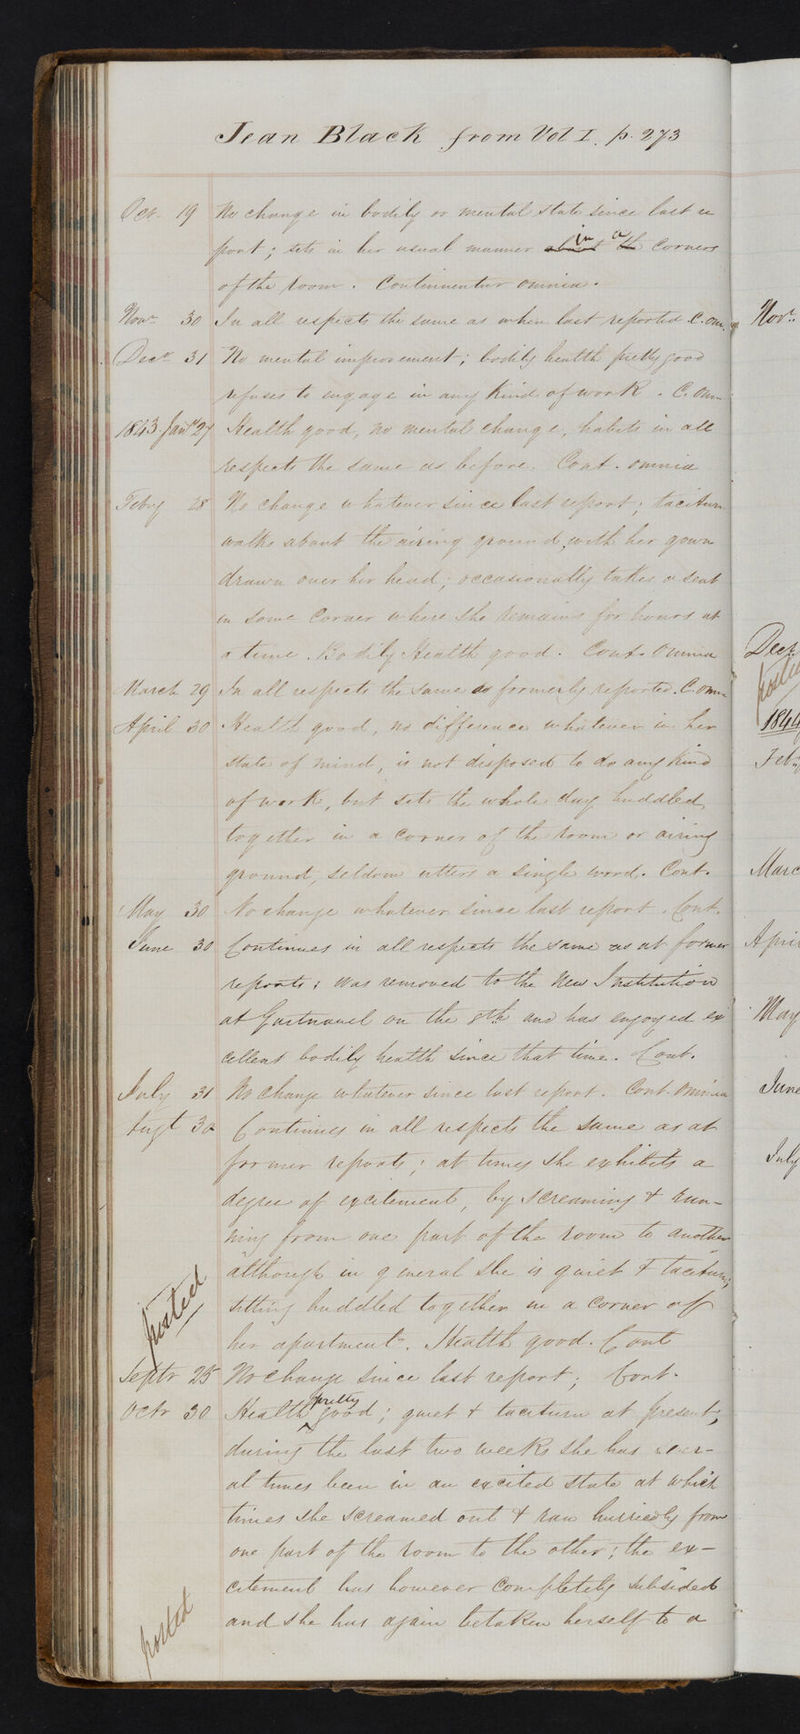 Jean Black from Vol I. p. 273
Octr 19 No change in bodily or mental state since last re
port; sits in her usual manner in a corner
of the room. Continuentur omnia.
Novr 30 In all respects the same as when last reported. C. om.
Decr 31 No mental improvement; bodily health pretty good
refuses to engage in any kind of work. C. Om.
1843 Jany 27 Health good, no mental change, habits in all
respects the same as before. Cont. omnia
Feby 28 No change whatever since last report; taciturn
walks about the airing ground, with her gown
drawn over her head; occasionally takes a seat
in some corner where she remains for hours at
a time. Bodily Health good. Cont. Omnia
March 29 In all respects the same as formerly reported. C. om.
April 30 Health good, no difference whatever in her
state of mind, is not disposed to do any kind
of work, but sits the whole day huddled
together in a corner of the room or airing
ground, seldom utters a single word. Cont.
May 30 No change whatever since last report. Cont.
June 30 Continues in all respects the same as at former
reports; was removed to the New Institution
at Gartnavel on the 8th and has enjoyed ex
cellent bodily health since that time. Cont.
July 31 No change whatever since last report. Cont. Omnia
Augt 30 Continues in all respects the same as at
former reports; at times she exhibits a
degree of excitement, by screaming & run-
ning from one part of the room to another
although in general she is quiet & taciturn;
sitting huddled together in a corner of
her apartment. Health good. Cont
posted
Septr 25 No change since last report; Cont.
Octr 30 Health pretty good; quiet & taciturn at present;
during the last two weeks she has sever-
al times been in an excited state at which
times she screamed out & ran hurriedly from
one part of the room to the other; the ex-
citement has however completely subsided
and she has again betaken herself to a
posted
Novr
Decr
posted
1844
Feb
Marc
Apri
May
June
July